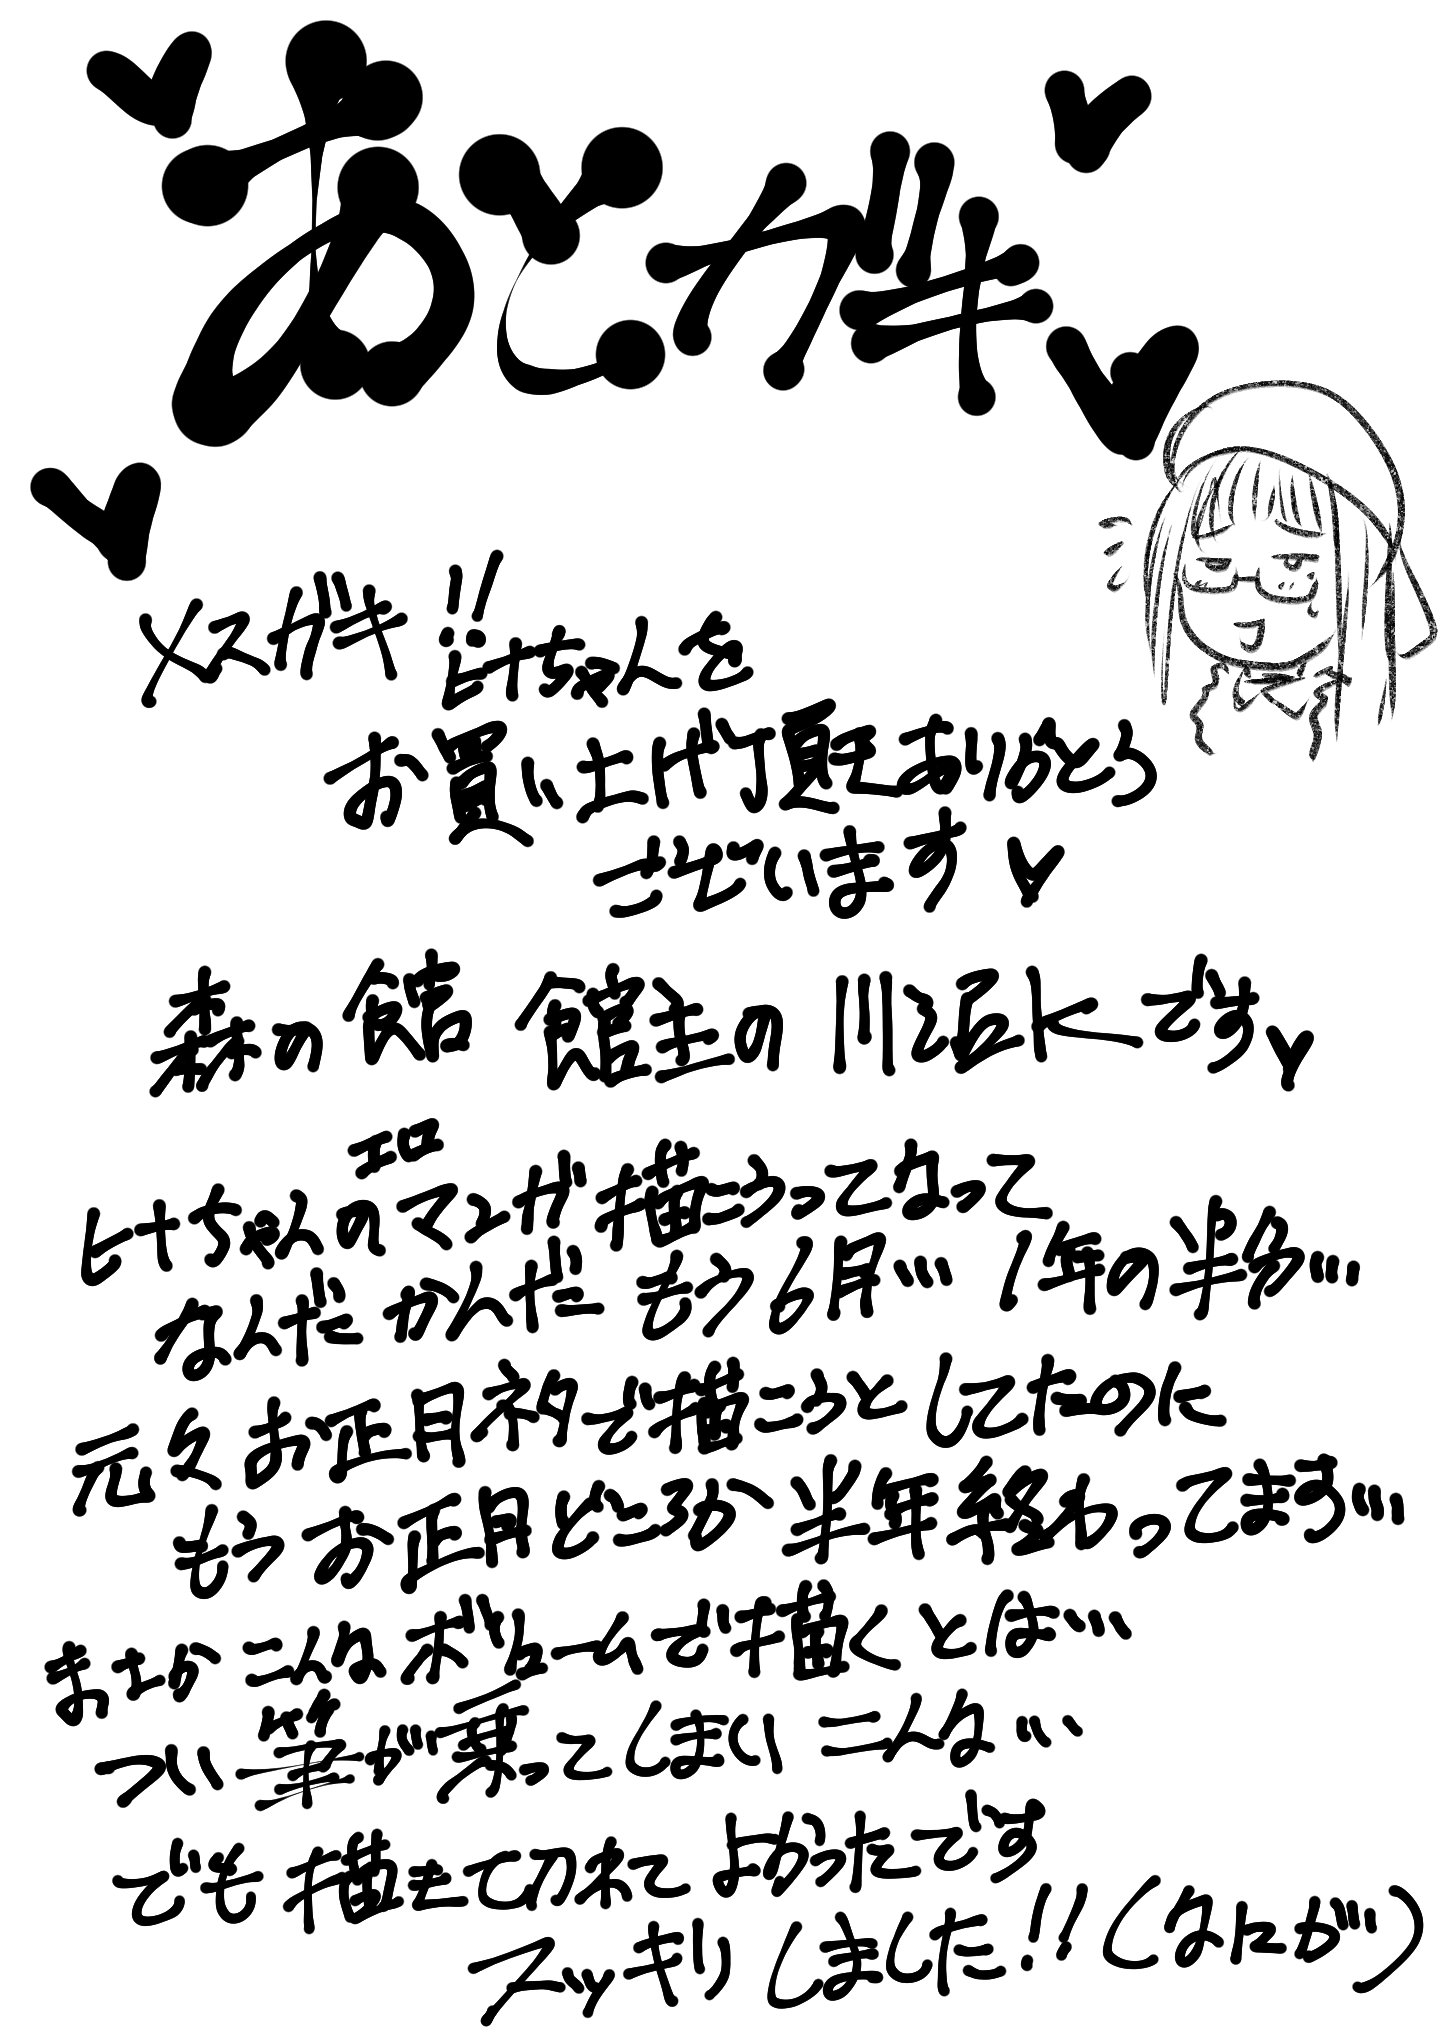 あとガキ
メスガキ!!ヒナちゃんを
お買い上げ頂きありがとう
ございます♥
森の館 館主の 川沿Kです♥
エロ
ヒナちゃんのマンガ描こうってなって
なんだかんだ もう6月… 1年の半分…
元々お正月ネタで描こうとしてたのに
もうお正月どころか半年終わってます…
まさかこんなボリュームで描くとは…
つい筆が乗ってしまいこんな…
でも描きて切れてよかったです
スッキリしました!!(なにが)